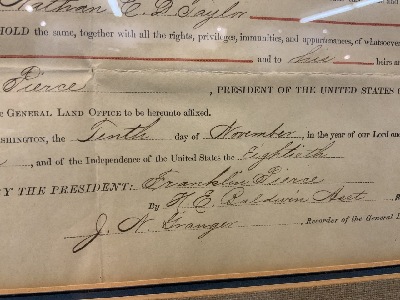 Nathan E. D. Taylor
HOLD the same, together with all the rights, privileges, immunities, and appurtenances, of whatsoever
and to his heirs a
Pierce, PRESIDENT OF THE UNITED STATES
e GENERAL LAND OFFICE to be hereunto affixed.
ASHINGTON, the Tenth day of November, in the year of our Lord one
, and of the Independence of the United States the Eightieth
BY THE PRESIDENT: Franklin Pierce
By H. E. Baldwin Asst
J. N. Granger, Recorder of the General L